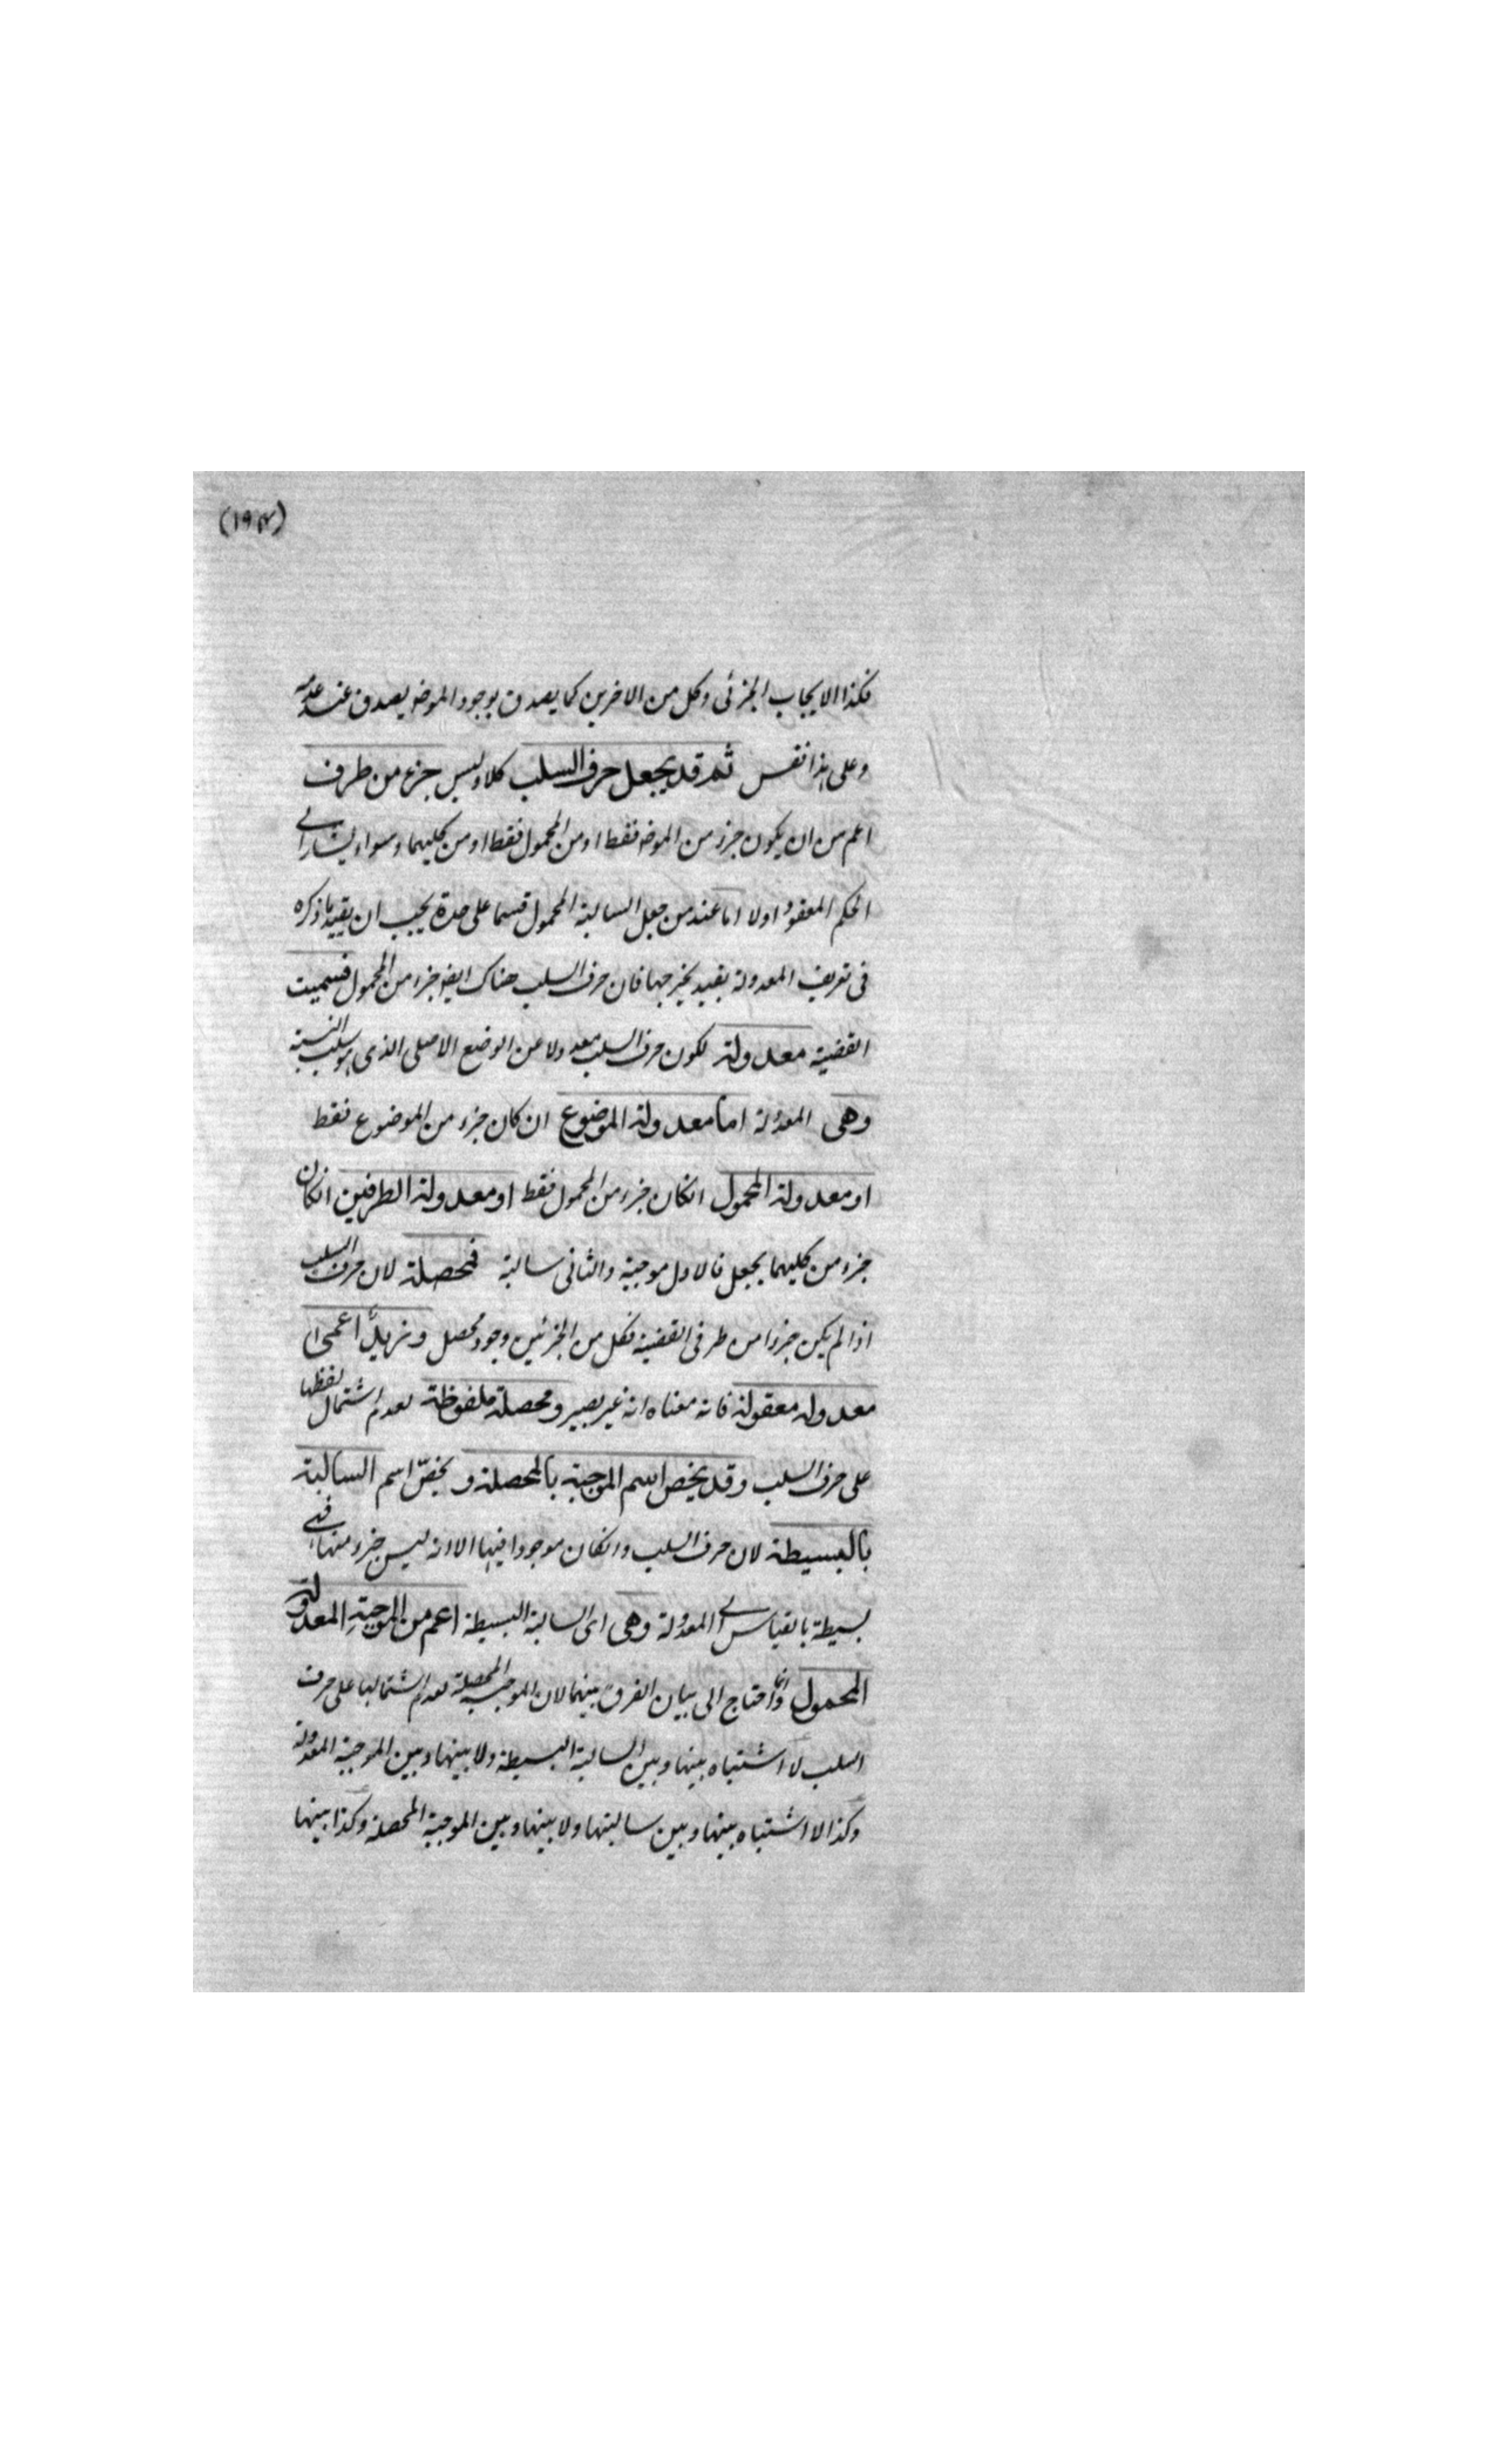 (١٩٤)
فكذا الايجاب الجزئى وكل من الاخرين كما يصدق بوجود الموضو يصدق عند عدمه
وعلى هذا فقس ثم قد يجعل حرف السلب كلا وليس جزء من طرف
اعم من ان يكون جزء من الموضو فقط او من المحمول فقط او من كليهما وسواء يشار الى
الحكم المعقود اولا اما عند من جعل السالبة المحمول قسما على حدة يجب ان يقيد ما ذكره
فى تعريف المعدولة بقيد يخرجها فان حرف السلب هناك ايضا جزء من المحمول فسميت
القضية معدولة لكون حرف السلب معدولا عن الوضع الاصلى الذى هو سلب النسبة
وهى المعدولة اما معدولة الموضوع ان كان جزء من الموضوع فقط
او معدولة المحمول انكان جزء من المحمول فقط او معدولة الطرفين انكان
جزء من كليهما يجعل فالاول موجبة والثانى سالبة فمحصلة لان حرف السلب
اذا لم يكن جزءا من طرفى القضية فكل من الجزئين وجود محصل و زيد اعمى
معدولة معقولة فانه معناه انه غير بصير ومحصلة ملفوظة لعدم اشتمال لفظها
على حرف السلب وقد يخص اسم الموجبة بالمحصلة و يخص اسم السالبة
بالبسيطة لان حرف السلب وانكان موجودا فيها الا انه ليس جزء منها فهى
بسيطة بالقياس الى المعدولة وهى اى السالبة البسيطة اعم من الموجبة المعدولة
المحمول وانما احتاج الى بيان الفرق بينهما لان الموجبة المحصلة لعدم اشتمالها على حرف
السلب لا اشتباه بينها وبين السالبة البسيطة ولا بينها وبين الموجبة المعدولة
وكذا لا اشتباه بينها وبين سالبتها ولا بينها وبين الموجبة المحصلة وكذا بينها